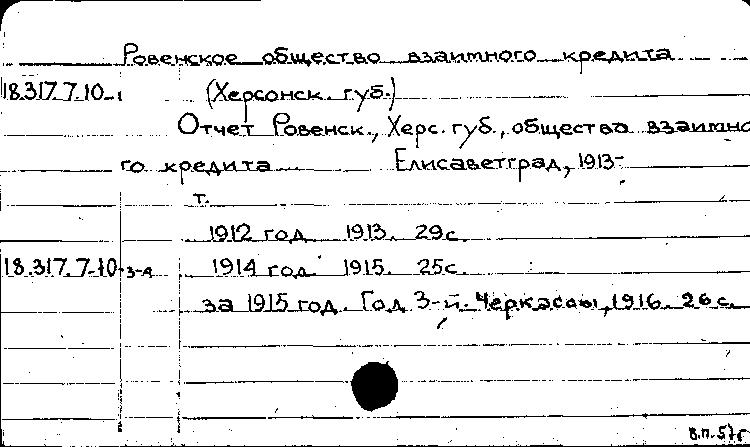 Ровенское общество взаимного кредита
18.317.7.10-1 (Херсонск. губ.)
Отчет Ровенск., Херс. губ., общества взаимно
го кредита Елисаветград, 1913-
т.
1912 год 1913. 29с.
18.317.7.10-3-4 1914 год 1915. 25с.
за 1915 год. Год 3-й. Черкассы, 1916. 26 с.